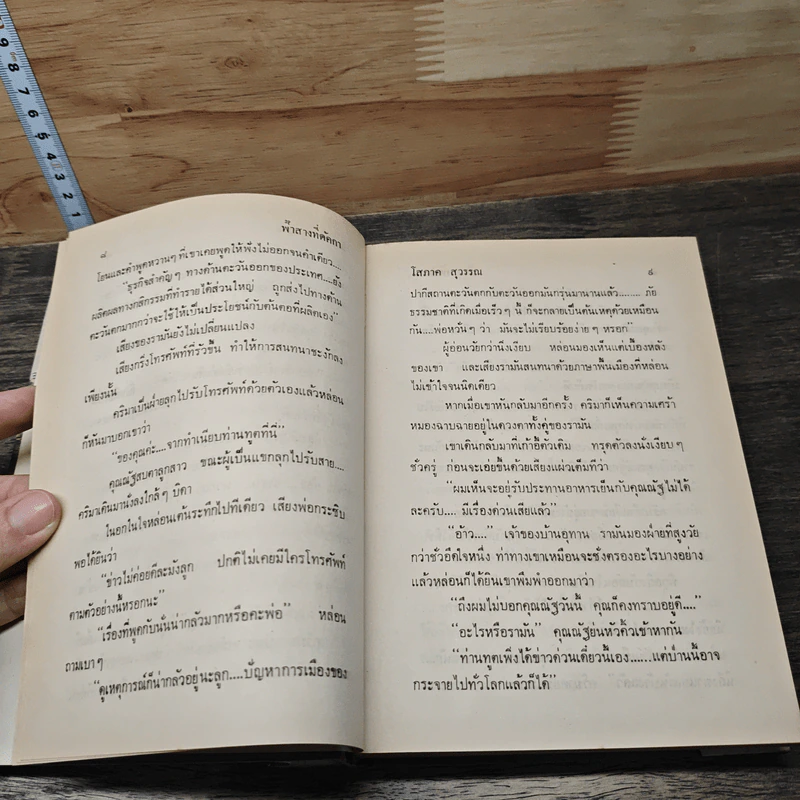 ๘
ฟ้าสางที่ดัคกา
โยนและคำพูดหวานๆ ที่เขาเคยพูดให้ฟังไม่ออกจนคำเดียว....
"ธุรกิจสำคัญๆ ทางด้านตะวันออกของประเทศ....ยัง
ผลิตผลทางกสิกรรมที่ทำรายได้ส่วนใหญ่ ถูกส่งไปทางด้าน
ตะวันตกมากกว่าจะใช้ให้เป็นประโยชน์กับต้นตอที่ผลิตเอง"
เสียงของรามันยังไม่เปลี่ยนแปลง
เสียงกริ่งโทรศัพท์ที่รัวขึ้น ทำให้การสนทนาชะงักลง
เพียงนั้น
คริมาเป็นฝ่ายลุกไปรับโทรศัพท์ด้วยตัวเองแล้วหล่อน
ก็หันมาบอกเขาว่า
"ของคุณค่ะ....จากทำเนียบท่านทูตที่นี่"
คุณณัฐสบตาลูกสาว ขณะผู้เป็นแขกลุกไปรับสาย....
คริมาเดินมานั่งลงใกล้ๆ บิดา
ในอกในใจหล่อนเต้นระทึกไปทีเดียว เสียงพ่อกระซิบ
พอได้ยินว่า
"ข่าวไม่ค่อยดีละมังลูก ปกติไม่เคยมีใครโทรศัพท์
ตามตัวอย่างนี้หรอกนะ"
"เรื่องที่พูดกันนั่นน่ากลัวมากหรือคะพ่อ" หล่อน
ถามเบาๆ
"ดูเหตุการณ์ก็น่ากลัวอยู่นะลูก....ปัญหาการเมืองของ
โสภาค สุวรรณ
๙
ปากีสถานตะวันตกกับตะวันออกมันกรุ่นมานานแล้ว........ ภัย
ธรรมชาติที่เกิดเมื่อเร็วๆ นี้ ก็จะกลายเป็นต้นเหตุด้วยเหมือน
กัน....พ่อหวั่นๆ ว่า มันจะไม่เรียบร้อยง่ายๆ หรอก"
ผู้อ่อนวัยกว่านิ่งเงียบ หล่อนมองเห็นแต่เบื้องหลัง
ของเขา และเสียงรามันสนทนาด้วยภาษาพื้นเมืองที่หล่อน
ไม่เข้าใจจนนิดเดียว
หากเมื่อเขาหันกลับมาอีกครั้ง คริมาก็เห็นความเศร้า
หมองฉาบฉายอยู่ในดวงตาทั้งคู่ของรามัน
เขาเดินกลับมาที่เก้าอี้ตัวเดิม ทรุดตัวลงนั่งเงียบๆ
ชั่วครู่ ก่อนจะเอ่ยขึ้นด้วยเสียงแผ่วเต็มทีว่า
"ผมเห็นจะอยู่รับประทานอาหารเย็นกับคุณณัฐไม่ได้
ละครับ.... มีเรื่องด่วนเสียแล้ว"
"อ้าว...." เจ้าของบ้านอุทาน รามันมองฝ่ายที่สูงวัย
กว่าชั่วอึดใจหนึ่ง ท่าทางเขาเหมือนจะชั่งตรองอะไรบางอย่าง
แล้วหล่อนก็ได้ยินเขาพึมพำออกมาว่า
"ถึงผมไม่บอกคุณณัฐวันนี้ คุณก็คงทราบอยู่ดี...."
"อะไรหรือรามัน" คุณณัฐย่นหัวคิ้วเข้าหากัน
"ท่านทูตเพิ่งได้ข่าวด่วนเดี๋ยวนี้เอง......แต่ป่านนี้อาจ
กระจายไปทั่วโลกแล้วก็ได้"
9
8
7
6
5
4
3
2
1